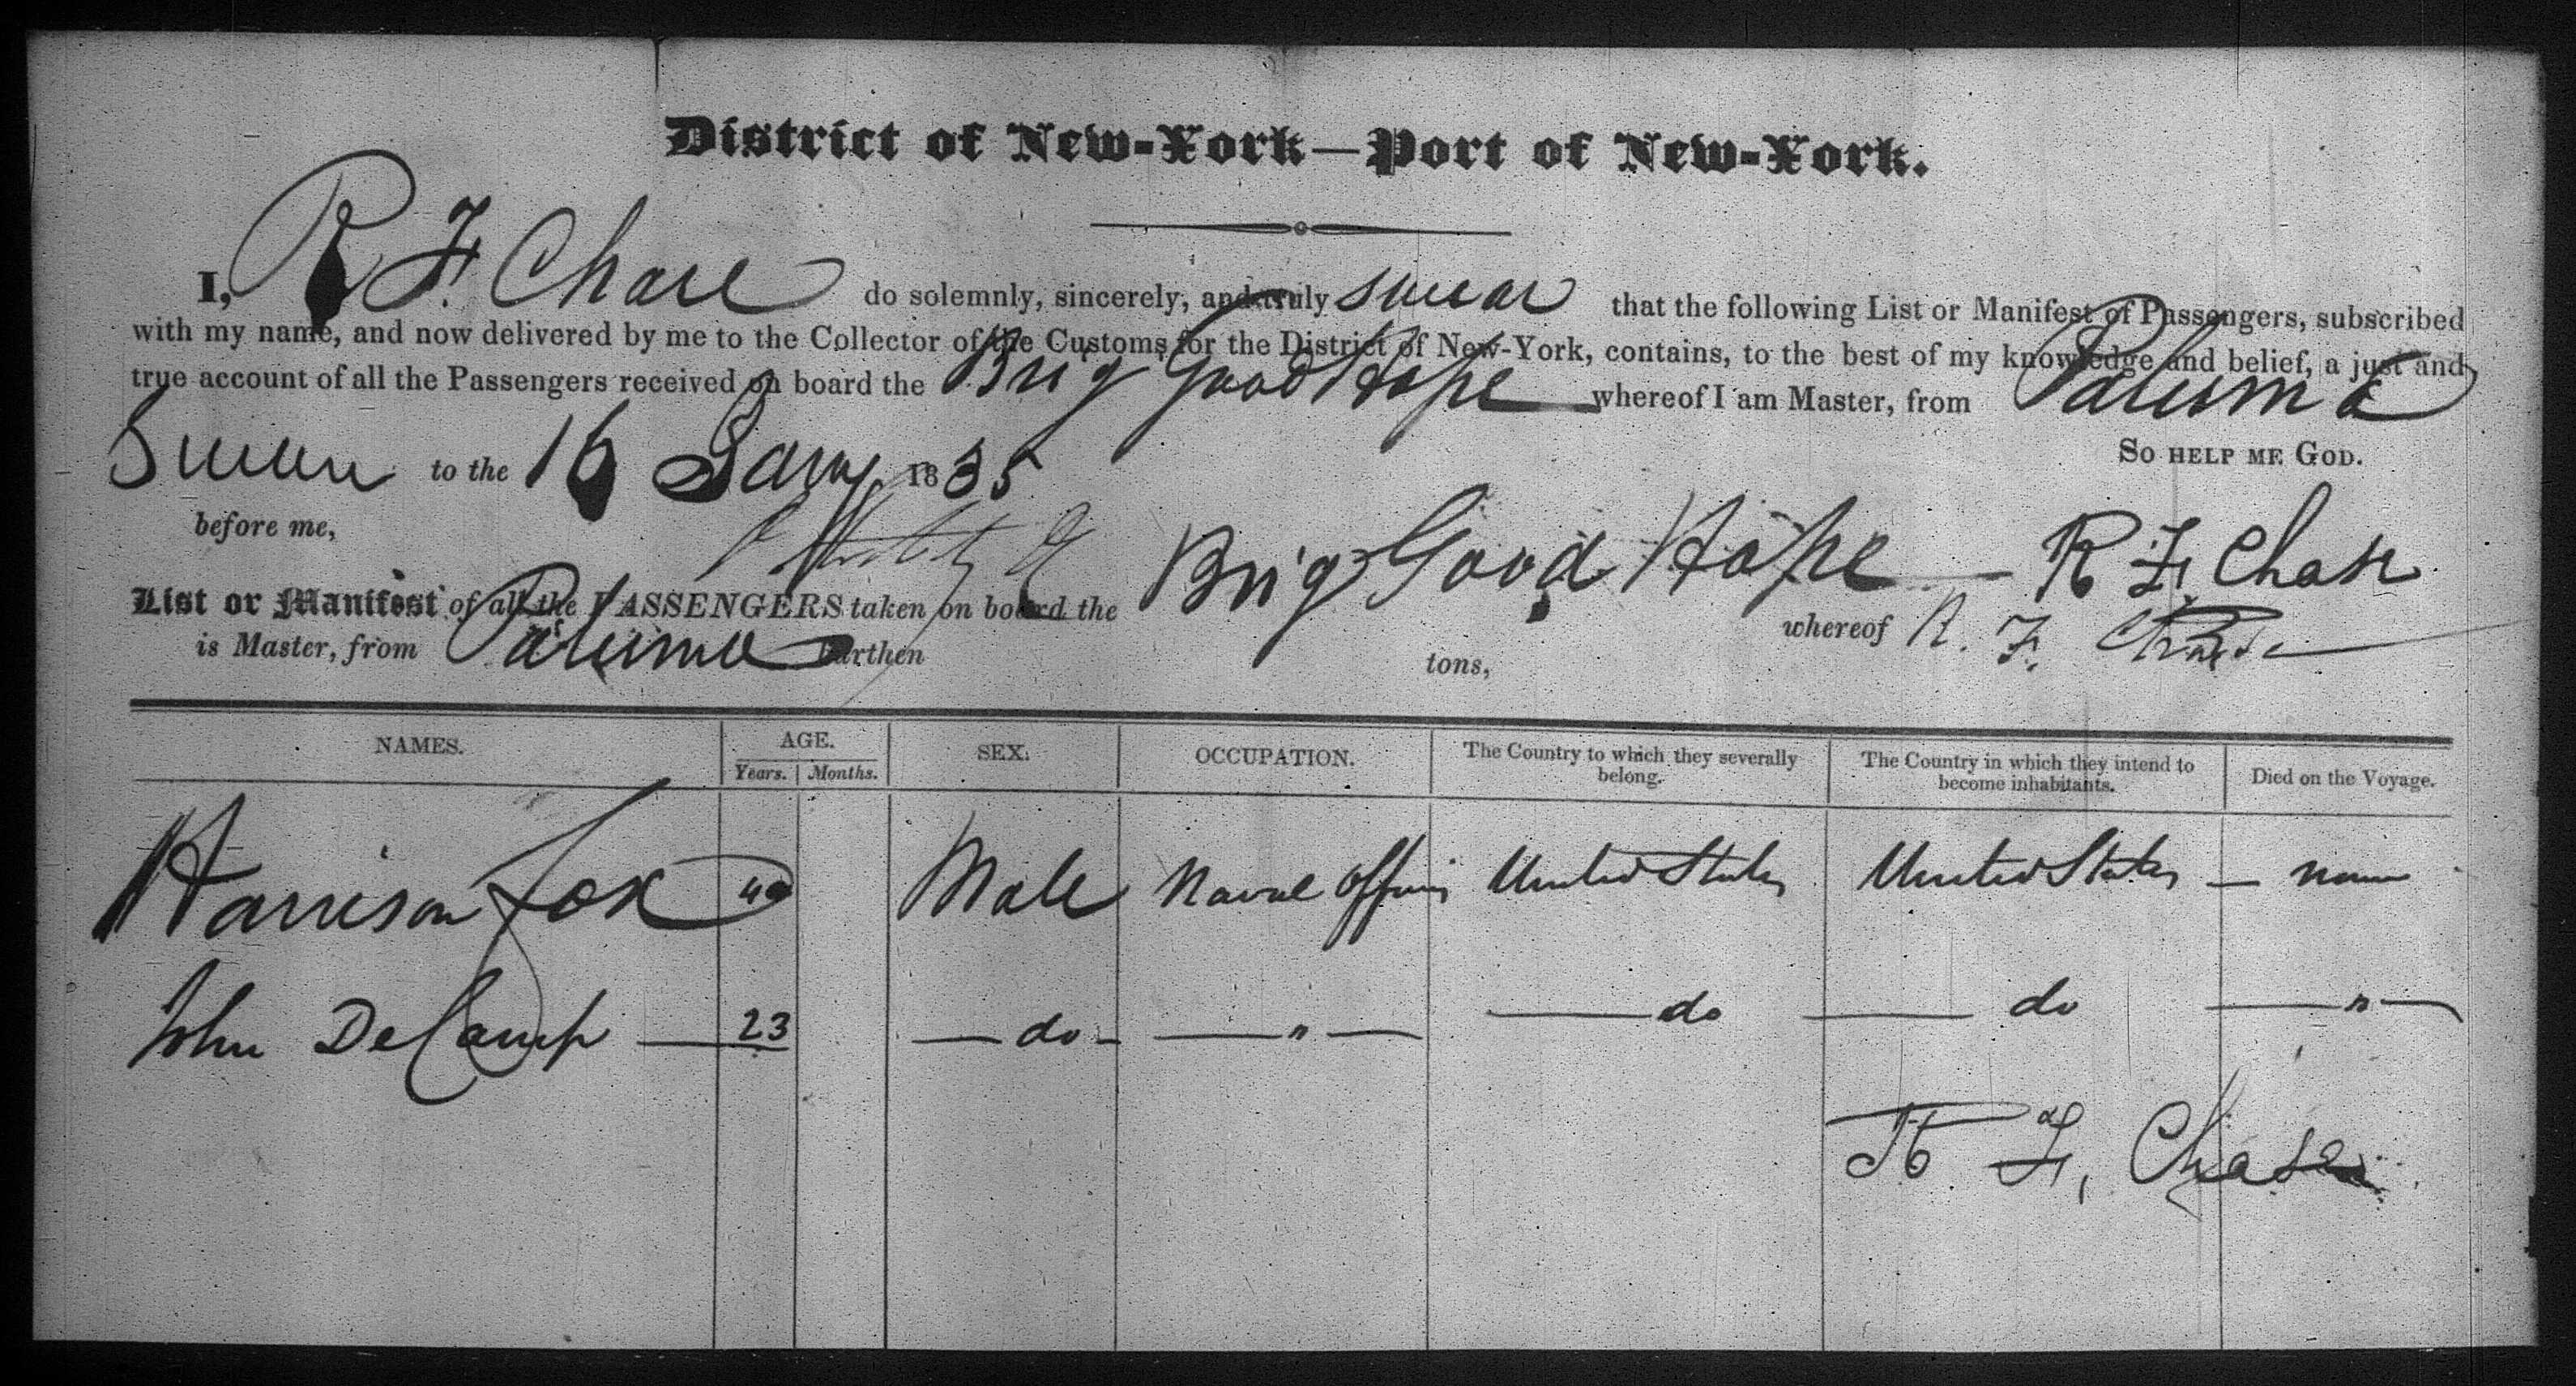 District of New-York—Port of New-York.
I, R F. Chase do solemnly, sincerely, and truly swear that the following List or Manifest of Passengers, subscribed
with my name, and now delivered by me to the Collector of the Customs for the District of New-York, contains, to the best of my knowledge and belief, a just and
true account of all the Passengers received on board the Brig Good Hope whereof I am Master, from
So help me God.
to the 16 Jany 1835
before me,
Brig Good Hope R F. Chase
List or Manifest of all the PASSENGERS taken on board the whereof R. F. Chase
is Master, from burthen tons,
NAMES. AGE. SEX. OCCUPATION. The Country to which they severally belong. The Country in which they intend to become inhabitants. Died on the Voyage.
Years. Months.
Harrison Fox 40 Male Naval United States United States — none
John DeCamp — 23 — do — — " — — do — do — " —
R F. Chase